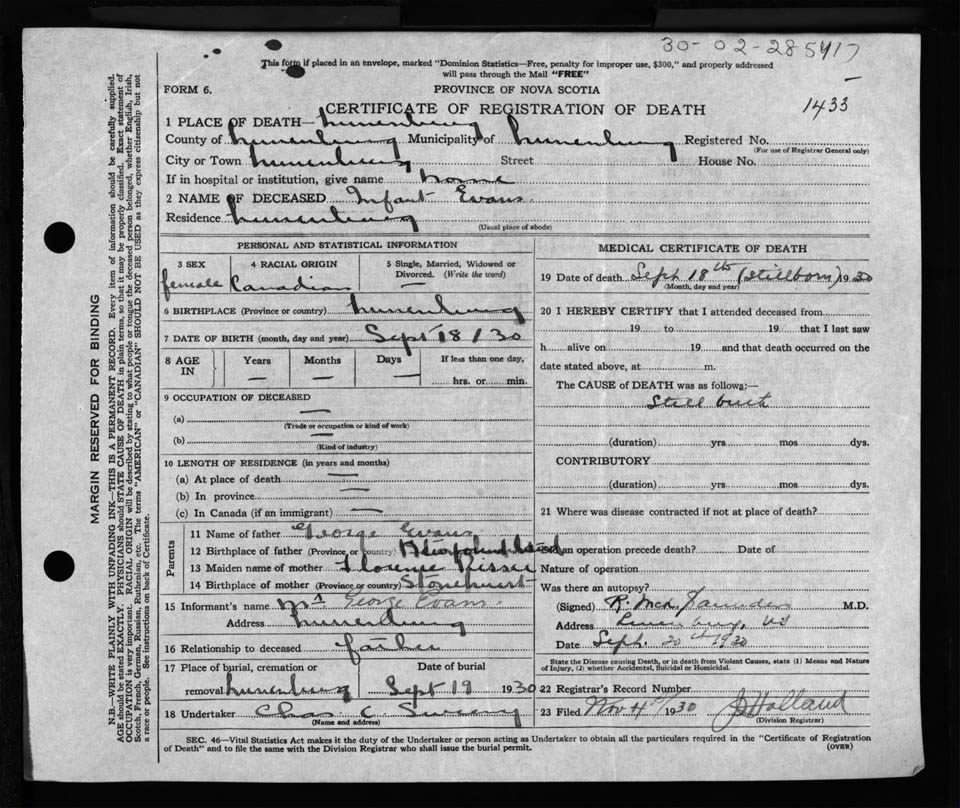 30-02-285417
This form if placed in an envelope, marked "Dominion Statistics—Free, penalty for improper use, $300," and properly addressed
will pass through the Mail "FREE"
FORM 6. PROVINCE OF NOVA SCOTIA
CERTIFICATE OF REGISTRATION OF DEATH 1433
1 PLACE OF DEATH— Lunenburg
County of Lunenburg Municipality of Lunenburg Registered No.
(For use of Registrar General only)
City or Town Lunenburg Street House No.
If in hospital or institution, give name
2 NAME OF DECEASED Infant Evans
Residence Lunenburg
(Usual place of abode)
MARGIN RESERVED FOR BINDING
N.B.—WRITE PLAINLY WITH UNFADING INK—THIS IS A PERMANENT RECORD. Every item of information should be carefully supplied.
AGE should be stated EXACTLY. PHYSICIANS should STATE CAUSE OF DEATH in plain terms, so that it may be properly classified. Exact statement of
OCCUPATION is very important. RACIAL ORIGIN will be described by stating to what people or tongue the deceased person belonged, whether English, Irish,
Scotch, French, German, Russian, Ruthenian, etc. The terms "AMERICAN" or "CANADIAN" SHOULD NOT BE USED as they express citizenship but not
a race or people. See instructions on back of Certificate.
PERSONAL AND STATISTICAL INFORMATION
3 SEX 4 RACIAL ORIGIN 5 Single, Married, Widowed or
Divorced. (Write the word)
female Canadian —
6 BIRTHPLACE (Province or country) Lunenburg
7 DATE OF BIRTH (month, day and year) Sept 18/30
8 AGE IN Years Months Days If less than one day,
— — — hrs. or min.
9 OCCUPATION OF DECEASED
(a) —
(Trade or occupation or kind of work)
(b) —
(Kind of industry)
10 LENGTH OF RESIDENCE (in years and months)
(a) At place of death —
(b) In province —
(c) In Canada (if an immigrant) —
Parents
11 Name of father George Evans
12 Birthplace of father (Province or country) Newfoundland
13 Maiden name of mother Florence
14 Birthplace of mother (Province or country) Stonehurst
15 Informant's name Mr George Evans.
Address Lunenburg
16 Relationship to deceased father
17 Place of burial, cremation or Date of burial
removal Lunenburg Sept 19 1930
18 Undertaker Chas C
(Name and address)
MEDICAL CERTIFICATE OF DEATH
19 Date of death Sept 18th (stillborn) 1930
(Month, day and year)
20 I HEREBY CERTIFY that I attended deceased from
19 to 19 that I last saw
h alive on 19 and that death occurred on the
date stated above, at m.
The CAUSE of DEATH was as follows:—
Still birth
(duration) yrs mos dys.
CONTRIBUTORY
(duration) yrs mos dys.
21 Where was disease contracted if not at place of death?
Did an operation precede death? Date of
Nature of operation
Was there an autopsy?
(Signed) M.D.
Address Lunenburg, NS
Date Sept. 20th 1930
State the Disease causing Death, or in death from Violent Causes, state (1) Means and Nature
of Injury, (2) whether Accidental, Suicidal or Homicidal.
22 Registrar's Record Number
23 Filed Nov 4th 1930 J Holland
(Division Registrar)
SEC. 46—Vital Statistics Act makes it the duty of the Undertaker or person acting as Undertaker to obtain all the particulars required in the "Certificate of Registration
of Death" and to file the same with the Division Registrar who shall issue the burial permit. (OVER)